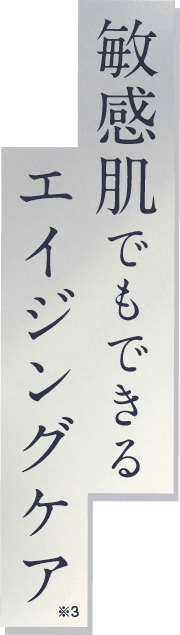 敏感肌でもできる
エイジングケア※3